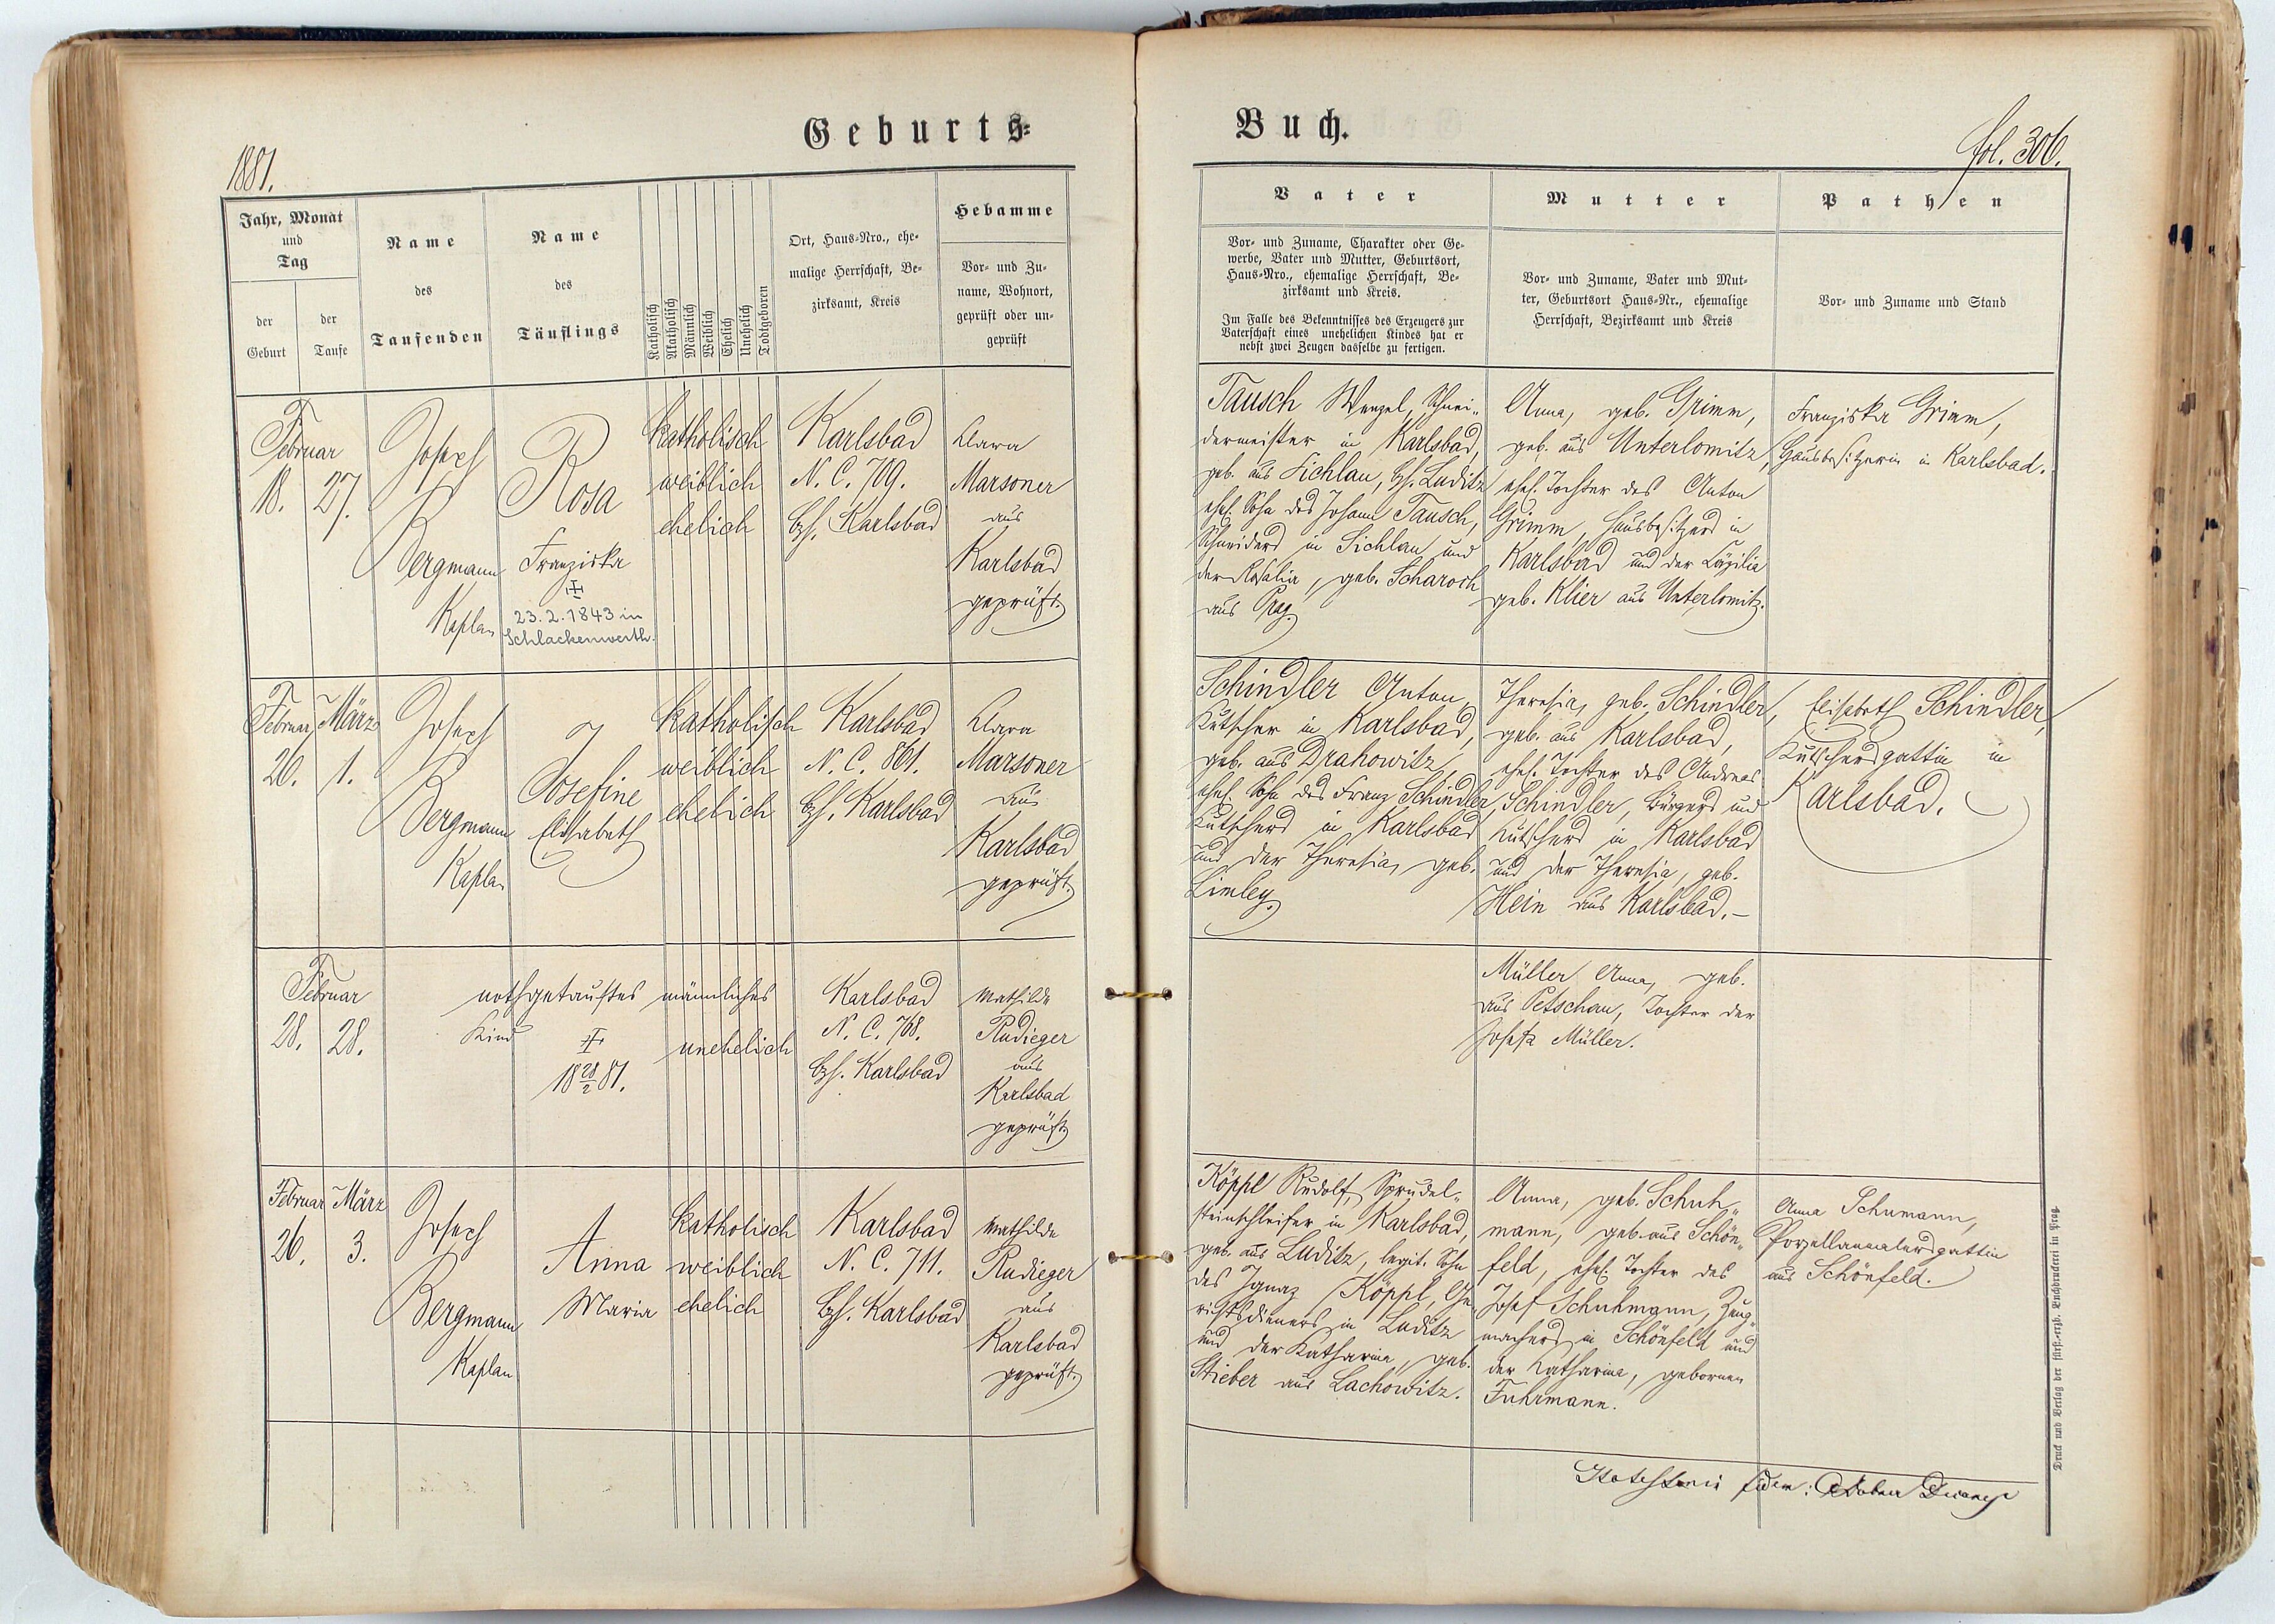 Geburts=
Buch.
1881.
fol. 306.
Jahr, Monat
und
Tag
der
Geburt
der
Taufe
Name
des
Taufenden
Name
des
Täuflings
Katholisch
Akatholisch
Männlich
Weiblich
Ehelich
Unehelich
Todtgeboren
Ort, Haus=Nro., ehe=
malige Herrschaft, Be=
zirksamt, Kreis
Hebamme
Vor= und Zu=
name, Wohnort,
geprüft oder un=
geprüft
Vater
Vor= und Zuname, Charakter oder Ge=
werbe, Vater und Mutter, Geburtsort,
Haus=Nro., ehemalige Herrschaft, Be=
zirksamt und Kreis.
Im Falle des Bekenntnisses des Erzeugers zur
Vaterschaft eines unehelichen Kindes hat er
nebst zwei Zeugen dasselbe zu fertigen.
Mutter
Vor= und Zuname, Vater und Mut=
ter, Geburtsort Haus=Nr., ehemalige
Herrschaft, Bezirksamt und Kreis
Pathen
Vor= und Zuname und Stand
Februar
18. 27.
Josef
Bergmann
Kaplan
Rosa
Franziska
23.2.1843 in
Schlackenwerth.
katholisch
weiblich
ehelich
Karlsbad
N. C. 709.
Bzh. Karlsbad
Clara
Marsoner
aus
Karlsbad
geprüft.
Tausch Wenzel, Schnei=
dermeister in Karlsbad,
geb. aus Sichlau, Bzh. Luditz
ehel. Sohn des Johann Tausch,
Schneiders in Sichlau und
der Rosalia, geb. Scharoch
aus Prag.
Anna, geb. Grimm,
geb. aus Unterlomitz,
ehel. Tochter des Anton
Grimm, Hausbesitzers in
Karlsbad und der Cäzilia
geb. Klier aus Unterlomitz.
Franziska Grimm,
Hausbesitzerin in Karlsbad.
Februar März
26. 1.
Josef
Bergmann
Kaplan
Josefine
Elisabeth
katholisch
weiblich
ehelich
Karlsbad
N. C. 861.
Bzh. Karlsbad
Clara
Marsoner
aus
Karlsbad
geprüft.
Schindler Anton,
Kutscher in Karlsbad,
geb. aus Drahowitz,
ehel. Sohn des Franz Schindler,
Kutschers in Karlsbad
und der Theresia, geb.
Limley.
Theresia, geb. Schindler,
geb. aus Karlsbad,
ehel. Tochter des Andreas
Schindler, Bürgers und
Kutschers in Karlsbad
und der Theresia, geb.
Hein aus Karlsbad.—
Elisabeth Schindler,
Kutschersgattin in
Karlsbad.
Februar
28. 28.
nothgetauftes männliches
Kind
18 28/2 81.
unehelich
Karlsbad
N. C. 768.
Bzh. Karlsbad
Mathilde
Rudieger
aus
Karlsbad
geprüft.
Müller Anna, geb.
aus Petschau, Tochter der
Josefa Müller.
Februar März
26. 3.
Josef
Bergmann
Kaplan
Anna
Maria
katholisch
weiblich
ehelich
Karlsbad
N. C. 711.
Bzh. Karlsbad
Mathilde
Rudieger
aus
Karlsbad
geprüft.
Köppl Rudolf, Sprudel=
steinschleifer in Karlsbad,
geb. aus Luditz, legit. Sohn
des Ignaz Köppl, Ge=
richtsdieners in Luditz
und der Katharina, geb.
Stieber aus Lachowitz.
Anna, geb. Schuh=
mann, geb. aus Schön=
feld, ehel. Tochter des
Josef Schuhmann, Zeug=
machers in Schönfeld und
der Katharina, gebornen
Fuhrmann.
Anna Schumann,
Porzellanmalersgattin
aus Schönfeld.
fidem:
Druck und Verlag der fürst.=erzb. Buchdruckerei in Prag.